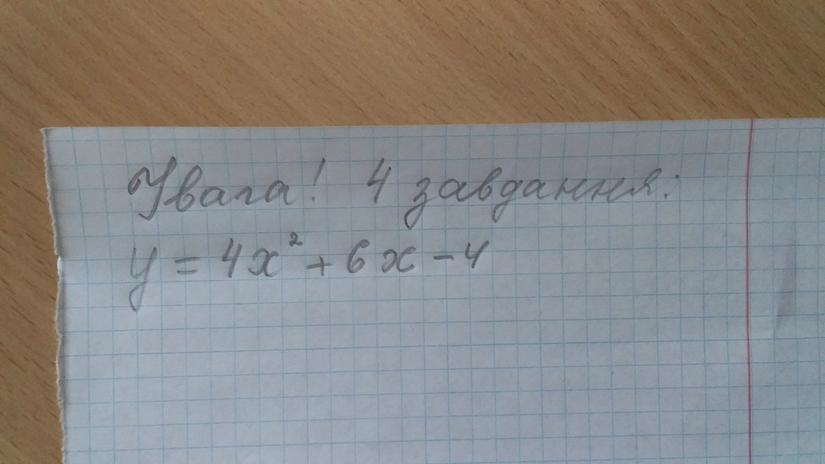 Увага! 4 завдання:
y = 4x² + 6x - 4